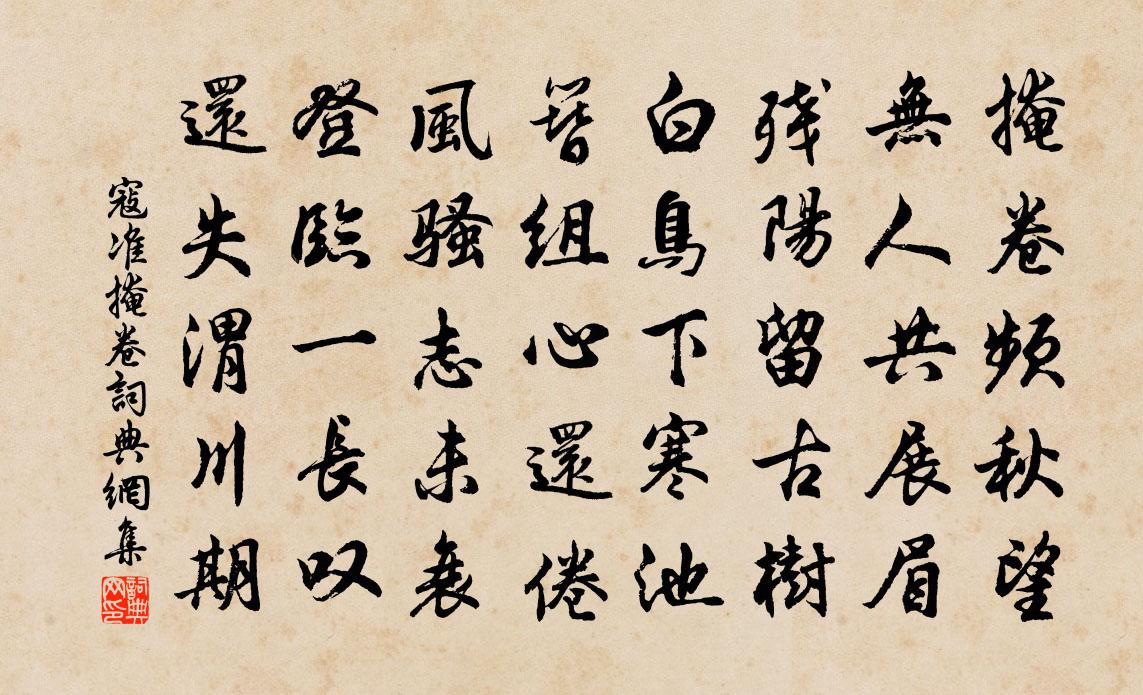 掩卷頻秋望
無人共展眉
残陽留古樹
白鳥下寒池
簪組心還倦
風騷志未衰
登臨一長叹
還失渭川期
寇准掩卷詞典網集
詞典網印